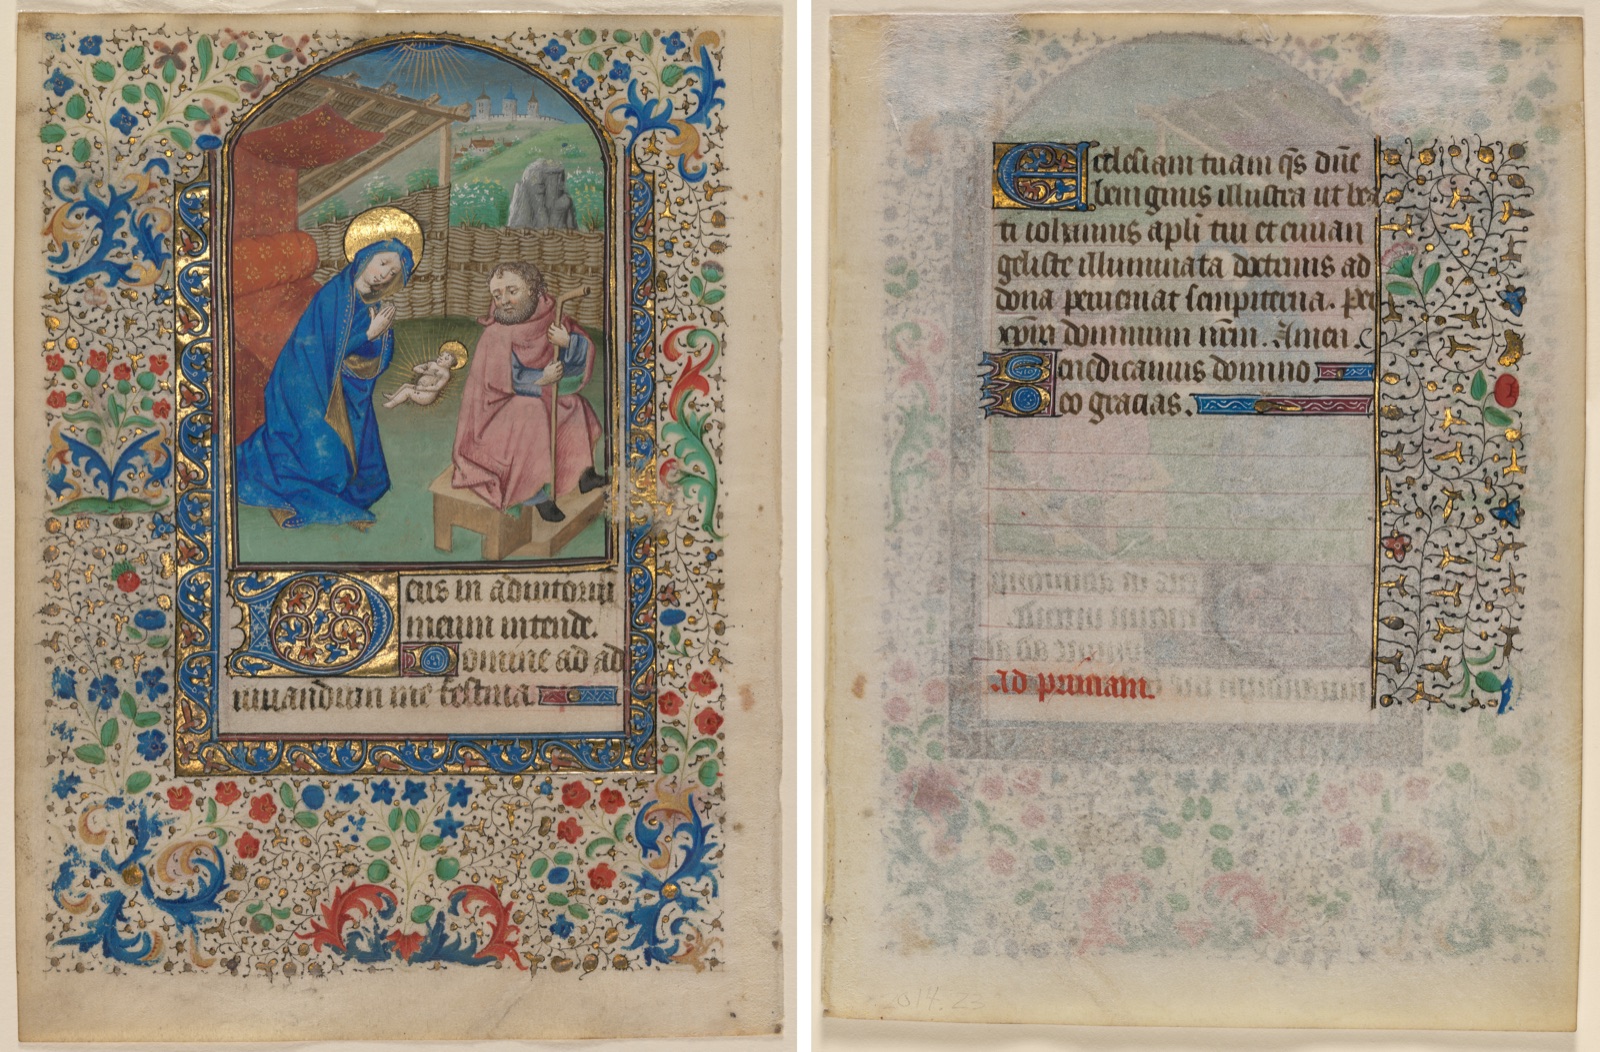 Deus in adiutoriu
meum intende.
Domine ad ad
iuuandum me festina.
Ecclesiam tuam q̄s dn̄e
benignus illustra ut bea
ti iohannis apl̄i tui et euuan
geliste illuminata doctrinis ad
dona perueniat sempiterna. Per
xp̄m dominum nr̄m. Amen.
Benedicamus domino.
Deo gracias.
Ad primam.